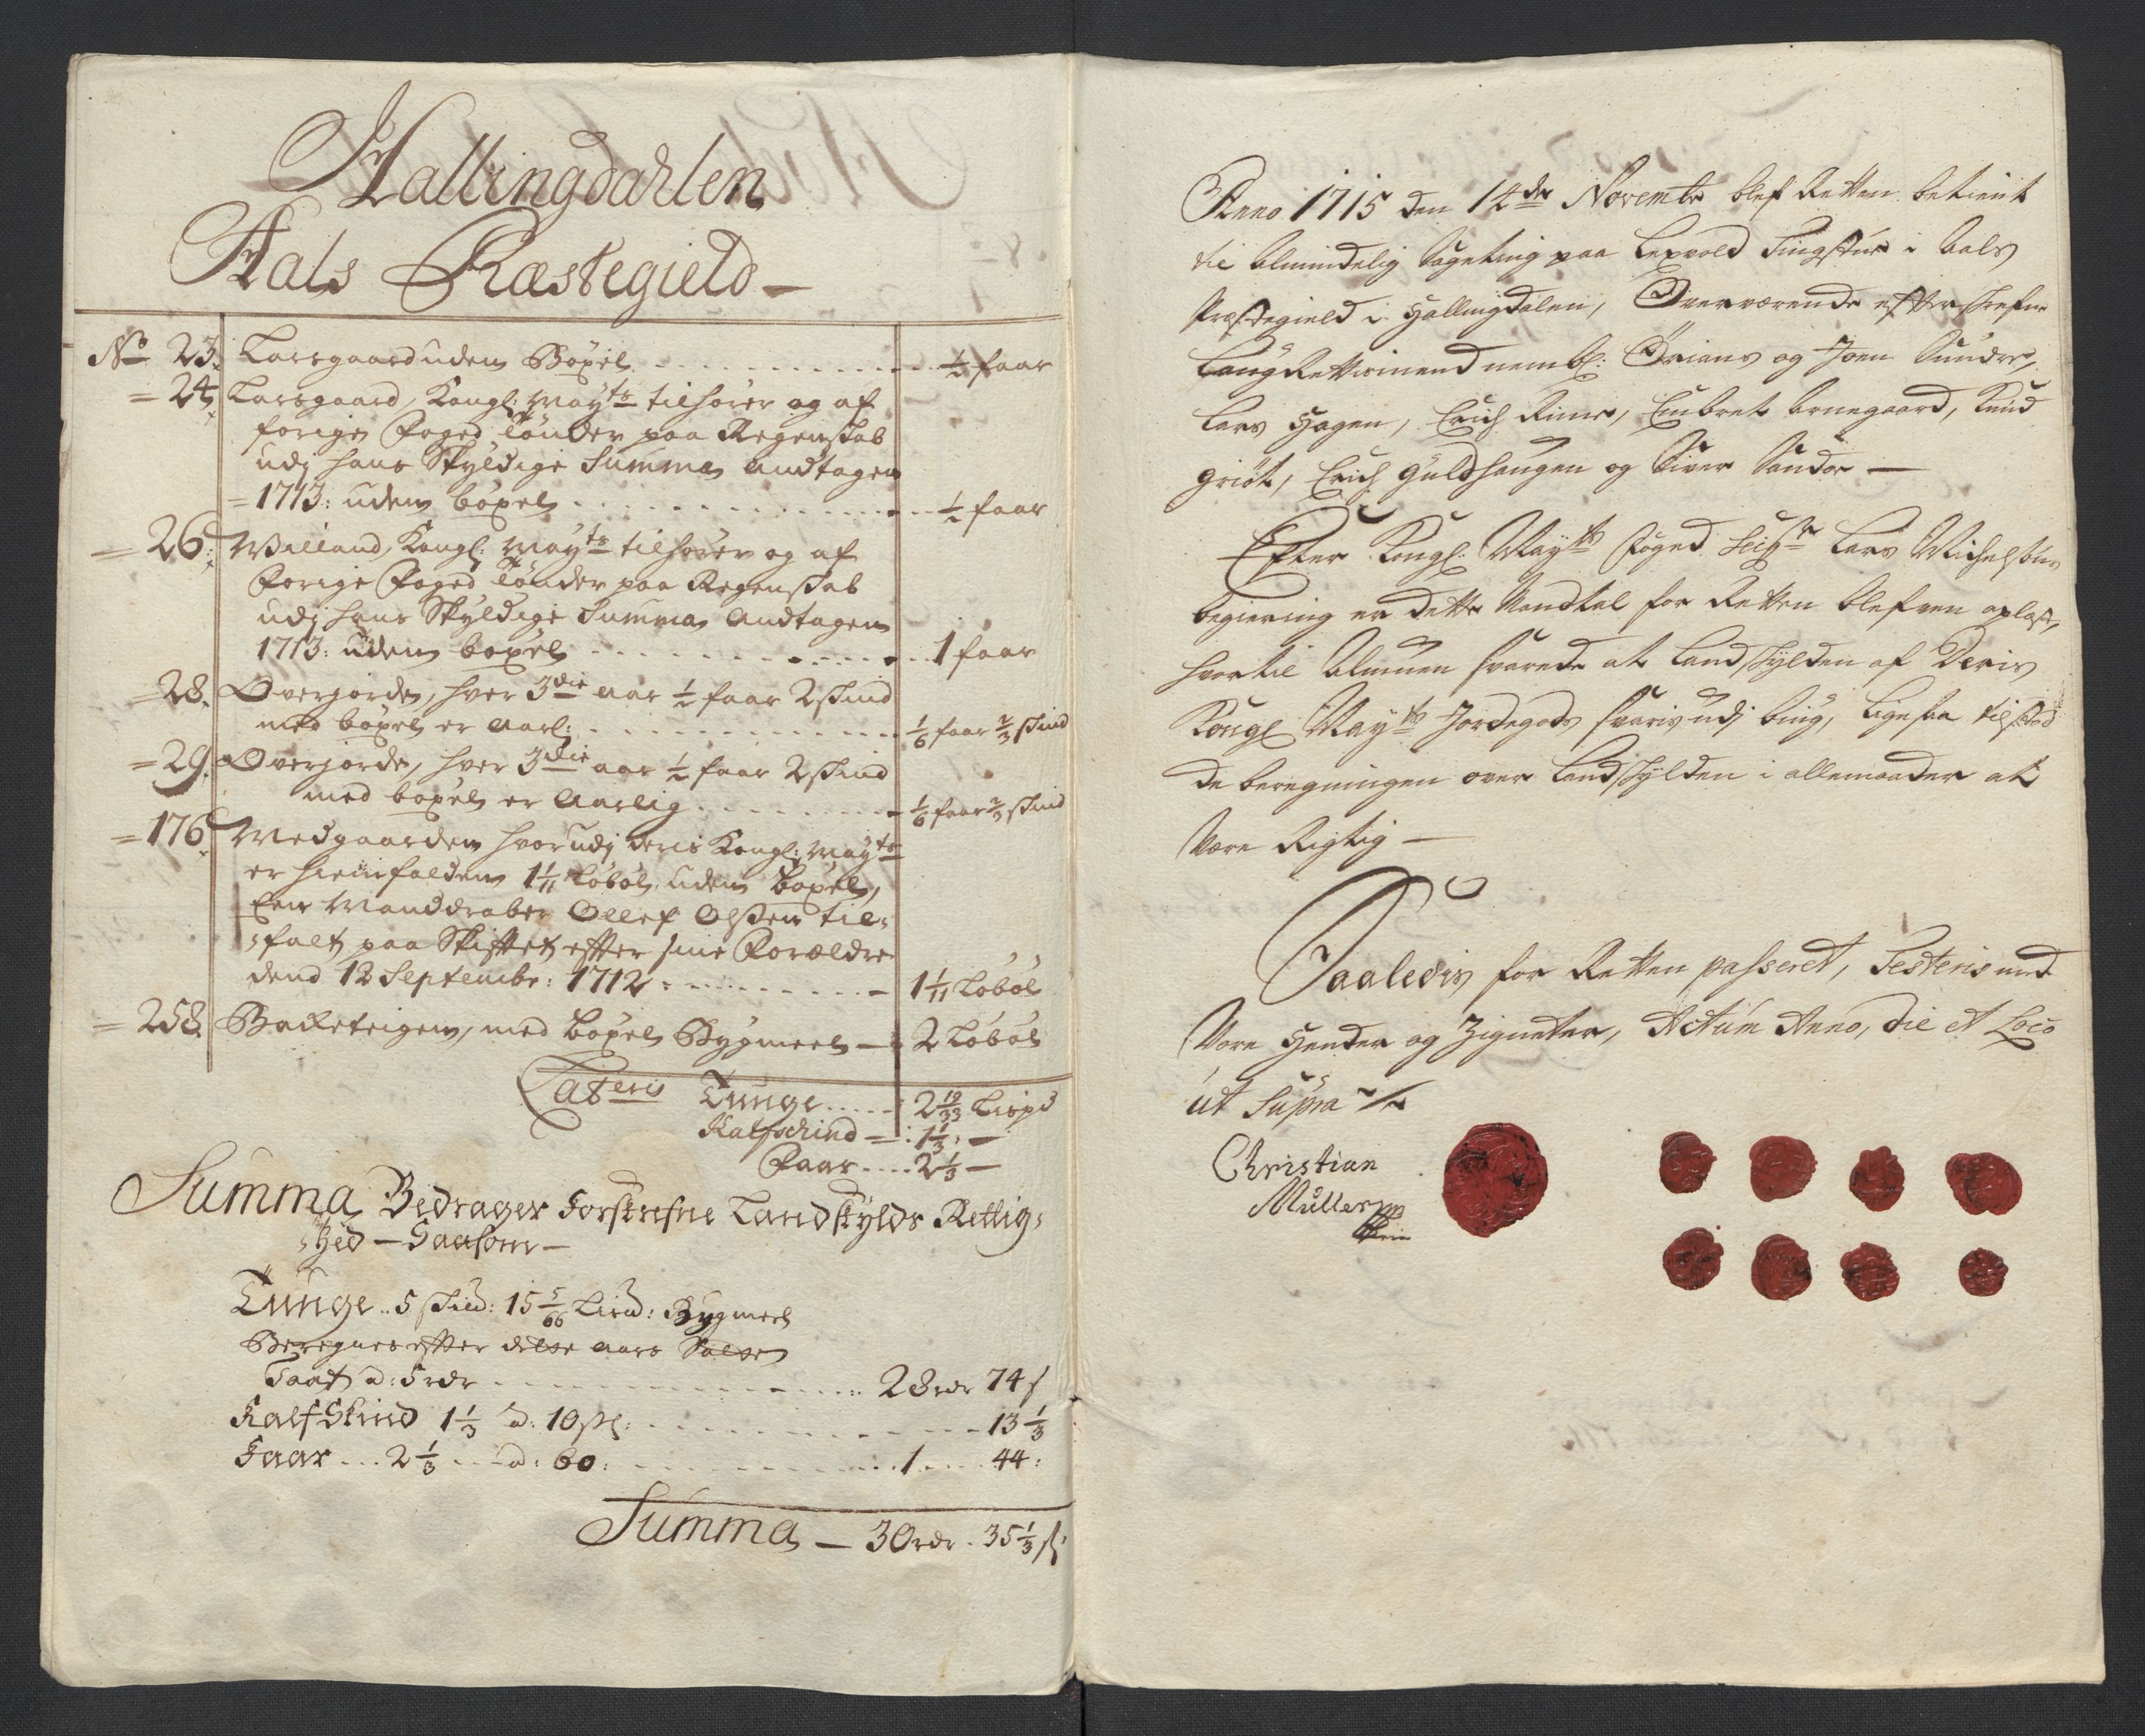 Hallingdahlen
Aals Præstegield
No 23. Larsgaard uden Böxel ½ faar
= 24. Larsgaard, Kongl: Mayts tilhører og af
forige Foged Tönder paa Regenskab
udj hans Skyldige Summa Andtagen
= 1713: uden böxel ½ faar
= 26: Villand, Kongl: Mayts tilhører og af
Forige Foged Tönder paa Regenskab
udj hans Skyldige Summa Andtagen
1713: uden böxel 1 faar
= 28. Overjorde, hver 3die aar ½ faar 2 skind
med böxel er Aarl: 1/6 faar 2/3 skind
= 29. Overjorde, hver 3die aar ½ faar 2 skind
med böxel er Aarlig 1/6 faar 2/3 skind
= 176. Medgaarden hvorudj deris Kongl: Mayts
er hiemfalden 1 1/11 Löbol, uden böxel,
Een Manddraber Ollef Olssen til=
=falt paa Skifftet efter sine Forældre
dend 12 Septembr: 1712 1 1/11 Löbol
= 258. Backeteigen, med böxel Bygmeel 2 Löbol
Lateris Tunge 2 19/33 Lispd
Kalfschind = 1 1/3: —
Faar 2 1/3 —
Summa Bedrager Forskrefne Landskylds Rettig=
=hed — Saasom —
Tunge .. 5 skid: 15 5/66 Lisd: Bygmeel
Beregnes efter dette aars Sætte
Taxt a: 5 rdr 28 rdr 74 s
Kalf Skind 1 1/3 a: 10 sk: 13 1/3
Faar 2 1/3 a: 60: 1 44:
Summa — 30 rdr. 35 1/3 s
Anno 1715 den 14de Novembr blef Retten betient
til Almindelig Sageting paa Lexvold Tingstue i Aals
Præstegield i Hallingdalen, Overværende efterskrefne
Laug Rettismend nembl: Örians og Joen Sundre,
Lars Hagen, Erich Rime, Embret Arnegaard, Knud
Griöt, Erich Guldhaugen og Siver Sandoe —
Efter Kongl: Mayts Foged Seigr Lars Michelsöns
begiering er dette Mandtal for Retten blefven oplæst,
hvortil Almuen svarede at Landskylden af Deris
Kongl Mayts Jordegods svaris udj bÿg, ligesaa tilstod
de beregningen over Landskylden i allemaader at
Være Rigtig —
Saaledis for Retten passeret, Testeris med
Vore Hender og Zigneter, Actum Anno, die et Loco
út Supra
Christian
Müller mp